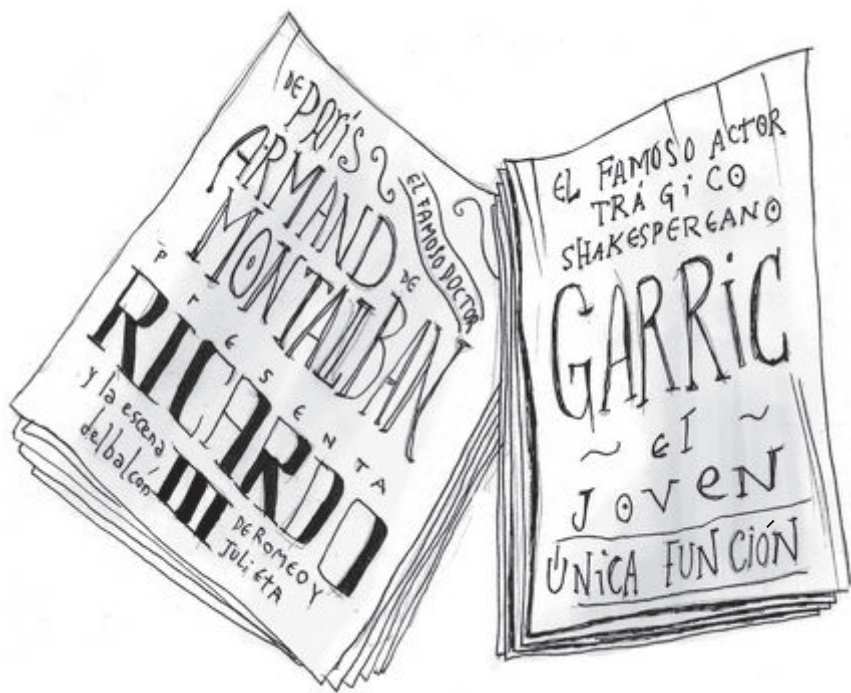 DE PARÍS
EL FAMOSO DOCTOR
ARMAND DE
MONTALBAN
PRESENTA
RICARDO
III
y la escena
del balcón
DE ROMEO Y
JULIETA
EL FAMOSO ACTOR
TRÁGiCO
SHAKESPEREANO
GARRiC
~ El ~
JOVEN
ÚNiCA FUNCIÓN